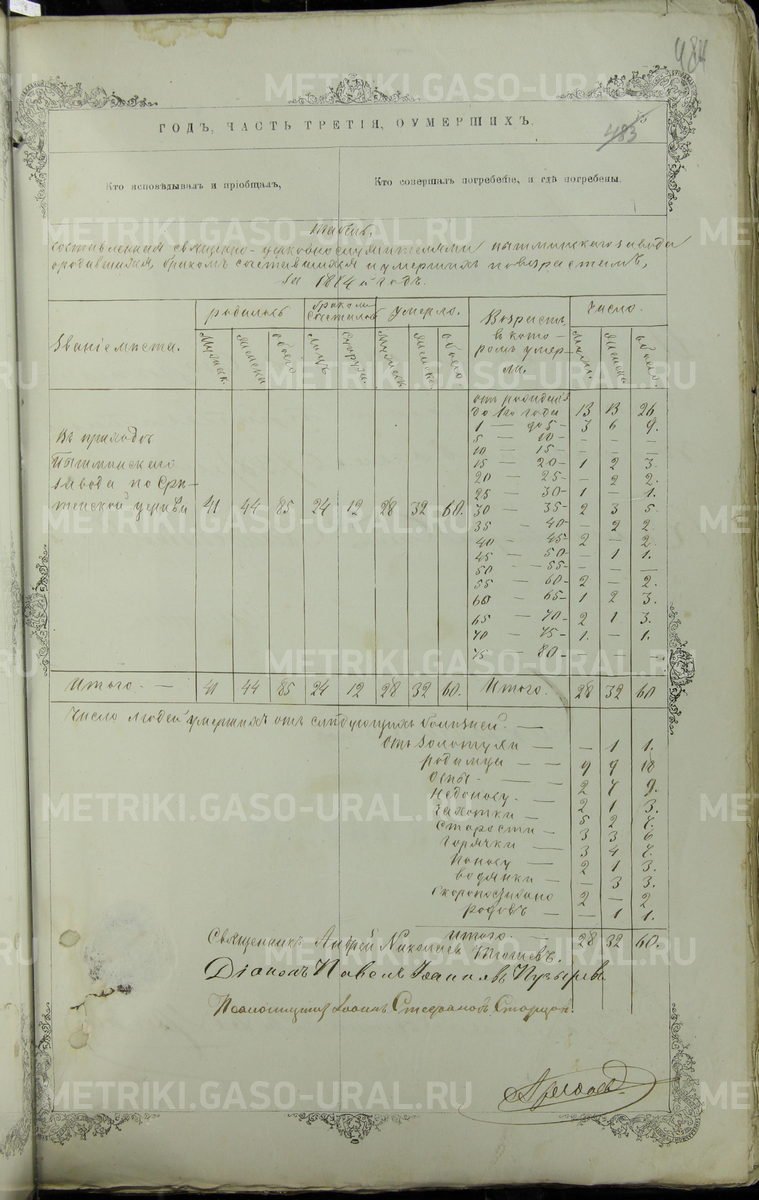 484
ГОДЪ, ЧАСТЬ ТРЕТІЯ, О УМЕРШИХЪ.
483
Кто исповѣдывалъ и пріобщалъ,
Кто совершалъ погребеніе, и гдѣ погребены.
составленная священно-церковнослужителями Пышминскаго завода
о родившихся, бракомъ сочетавшихся и умершихъ по возрастамъ,
за 1874й годъ.
Званіе мѣста. родилось умерло. Возрастъ, въ которомъ умерли. Число.
Лицъ Обоего
отъ рожденія до 1го года 13 13 26
1 — до 5 — 3 6 9.
5 — 10 — — — —
10 — 15 — — — —
15 — 20 — 1 2 3.
20 — 25 — — 2 2.
25 — 30 — 1 — 1.
Въ приходѣ Пышминскаго завода по Срѣтенской церкви 41 44 85 24 12 28 32 60. 30 — 35 — 2 3 5.
35 — 40 — — 2 2
40 — 45 — 2 — 2.
45 — 50 — — 1 1.
50 — 55 — — — —
55 — 60 — 2 — 2.
60 — 65 — 1 2 3.
65 — 70 — 2 1 3.
70 — 75 — 1. — 1.
75 — 80 — — — —
Итого. — 41 44 85 24 12 28 32 60. Итого. 28 32 60
Число людей умершихъ отъ слѣдующихъ болѣзней. —
Отъ золотухи — — 1 1.
родимца — 9 9 18
Оспы — 2 7 9.
Недоносу. — 2 1 3.
Чахотки — 5 2 7.
Старости — 3 3 6
Горячки — 3 4 7.
Поносу — 2 1 3.
водянки — — 3 3.
Скоропостижно 2 — 2
родовъ — — 1 1.
Итого. — 28 32 60.
Священникъ Андрей Николаевъ
Діаконъ Павелъ Іоанновъ Пузыревъ
Псаломщикъ Іоаннъ Стефановъ
METRIKI.GASO-URAL.RU